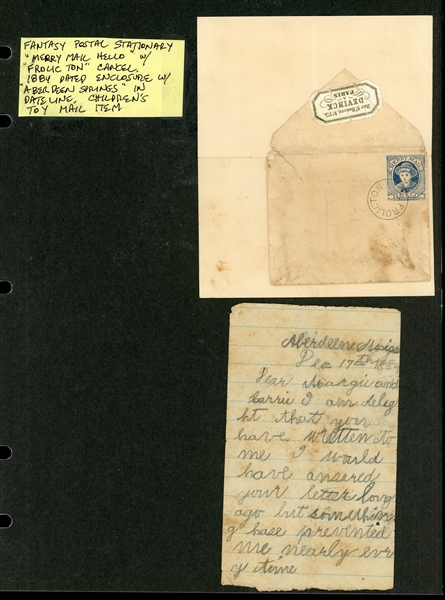 FANTASY POSTAL STATIONARY
"MERRY MAIL HELLO" W/
"FROLIC TON" CANCEL,
1884 DATED ENCLOSURE W/
"ABERDEEN SPRINGS" IN
DATELINE, CHILDREN'S
TOY MAIL ITEM
DEVINCK
PARIS
FROLICTON
Aberdeen
Dec 17th 1884
Dear Margie and
Carrie I am delig
ht that you
have written to
me I would
have ansered
your letter long
ago but somethine
g hase prevented
me nearly evr
y time